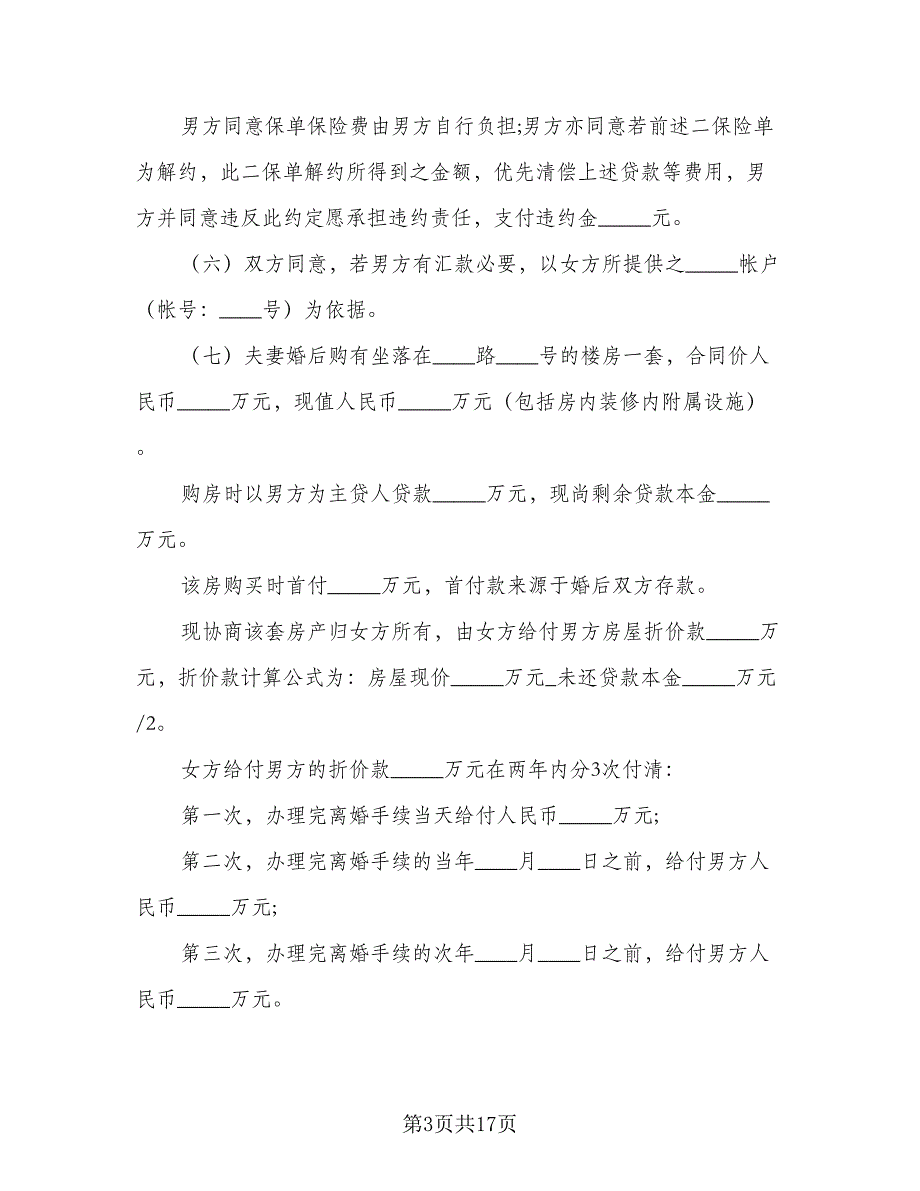 男方同意保单保险费由男方自行负担;男方亦同意若前述二保险单
为解约，此二保单解约所得到之金额，优先清偿上述贷款等费用，男
方并同意违反此约定愿承担违约责任，支付违约金_____元。
（六）双方同意，若男方有汇款必要，以女方所提供之_____帐户
（帐号：____号）为依据。
（七）夫妻婚后购有坐落在____路____号的楼房一套，合同价人
民币_____万元，现值人民币_____万元（包括房内装修内附属设施）
。
购房时以男方为主贷人贷款_____万元，现尚剩余贷款本金_____
万元。
该房购买时首付_____万元，首付款来源于婚后双方存款。
现协商该套房产归女方所有，由女方给付男方房屋折价款_____万
元，折价款计算公式为：房屋现价_____万元_未还贷款本金_____万元
/2。
女方给付男方的折价款_____万元在两年内分3次付清：
第一次，办理完离婚手续当天给付人民币_____万元;
第二次，办理完离婚手续的当年____月____日之前，给付男方人
民币_____万元;
第三次，办理完离婚手续的次年____月____日之前，给付男方人
民币_____万元。
第3页共17页